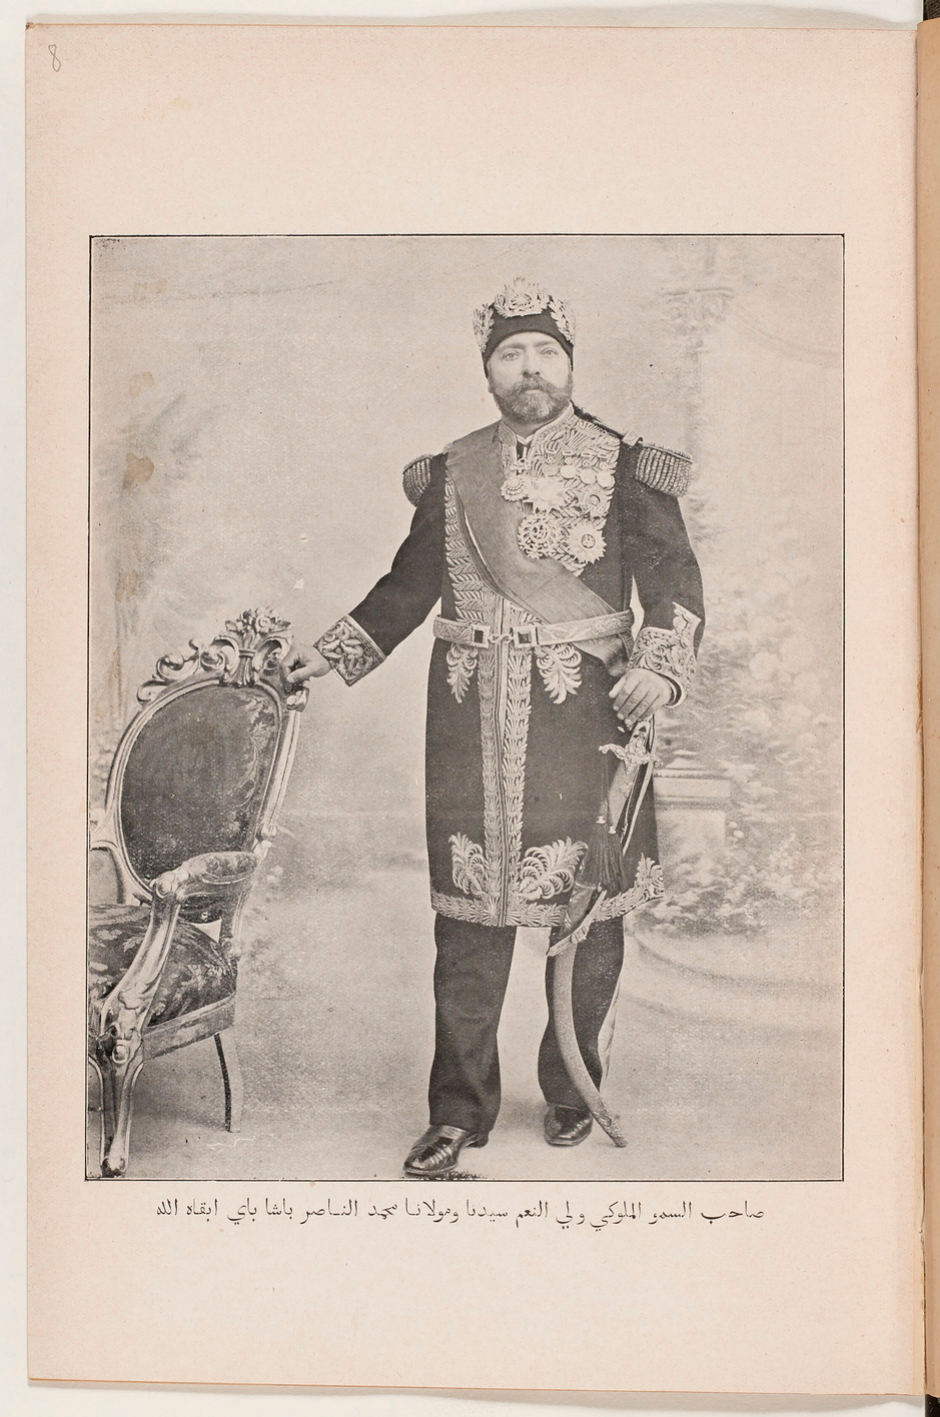 8
صاحب السمو الملوكي ولي النعم سيدنا ومولانا محمد الناصر باشا باي ابقاه الله